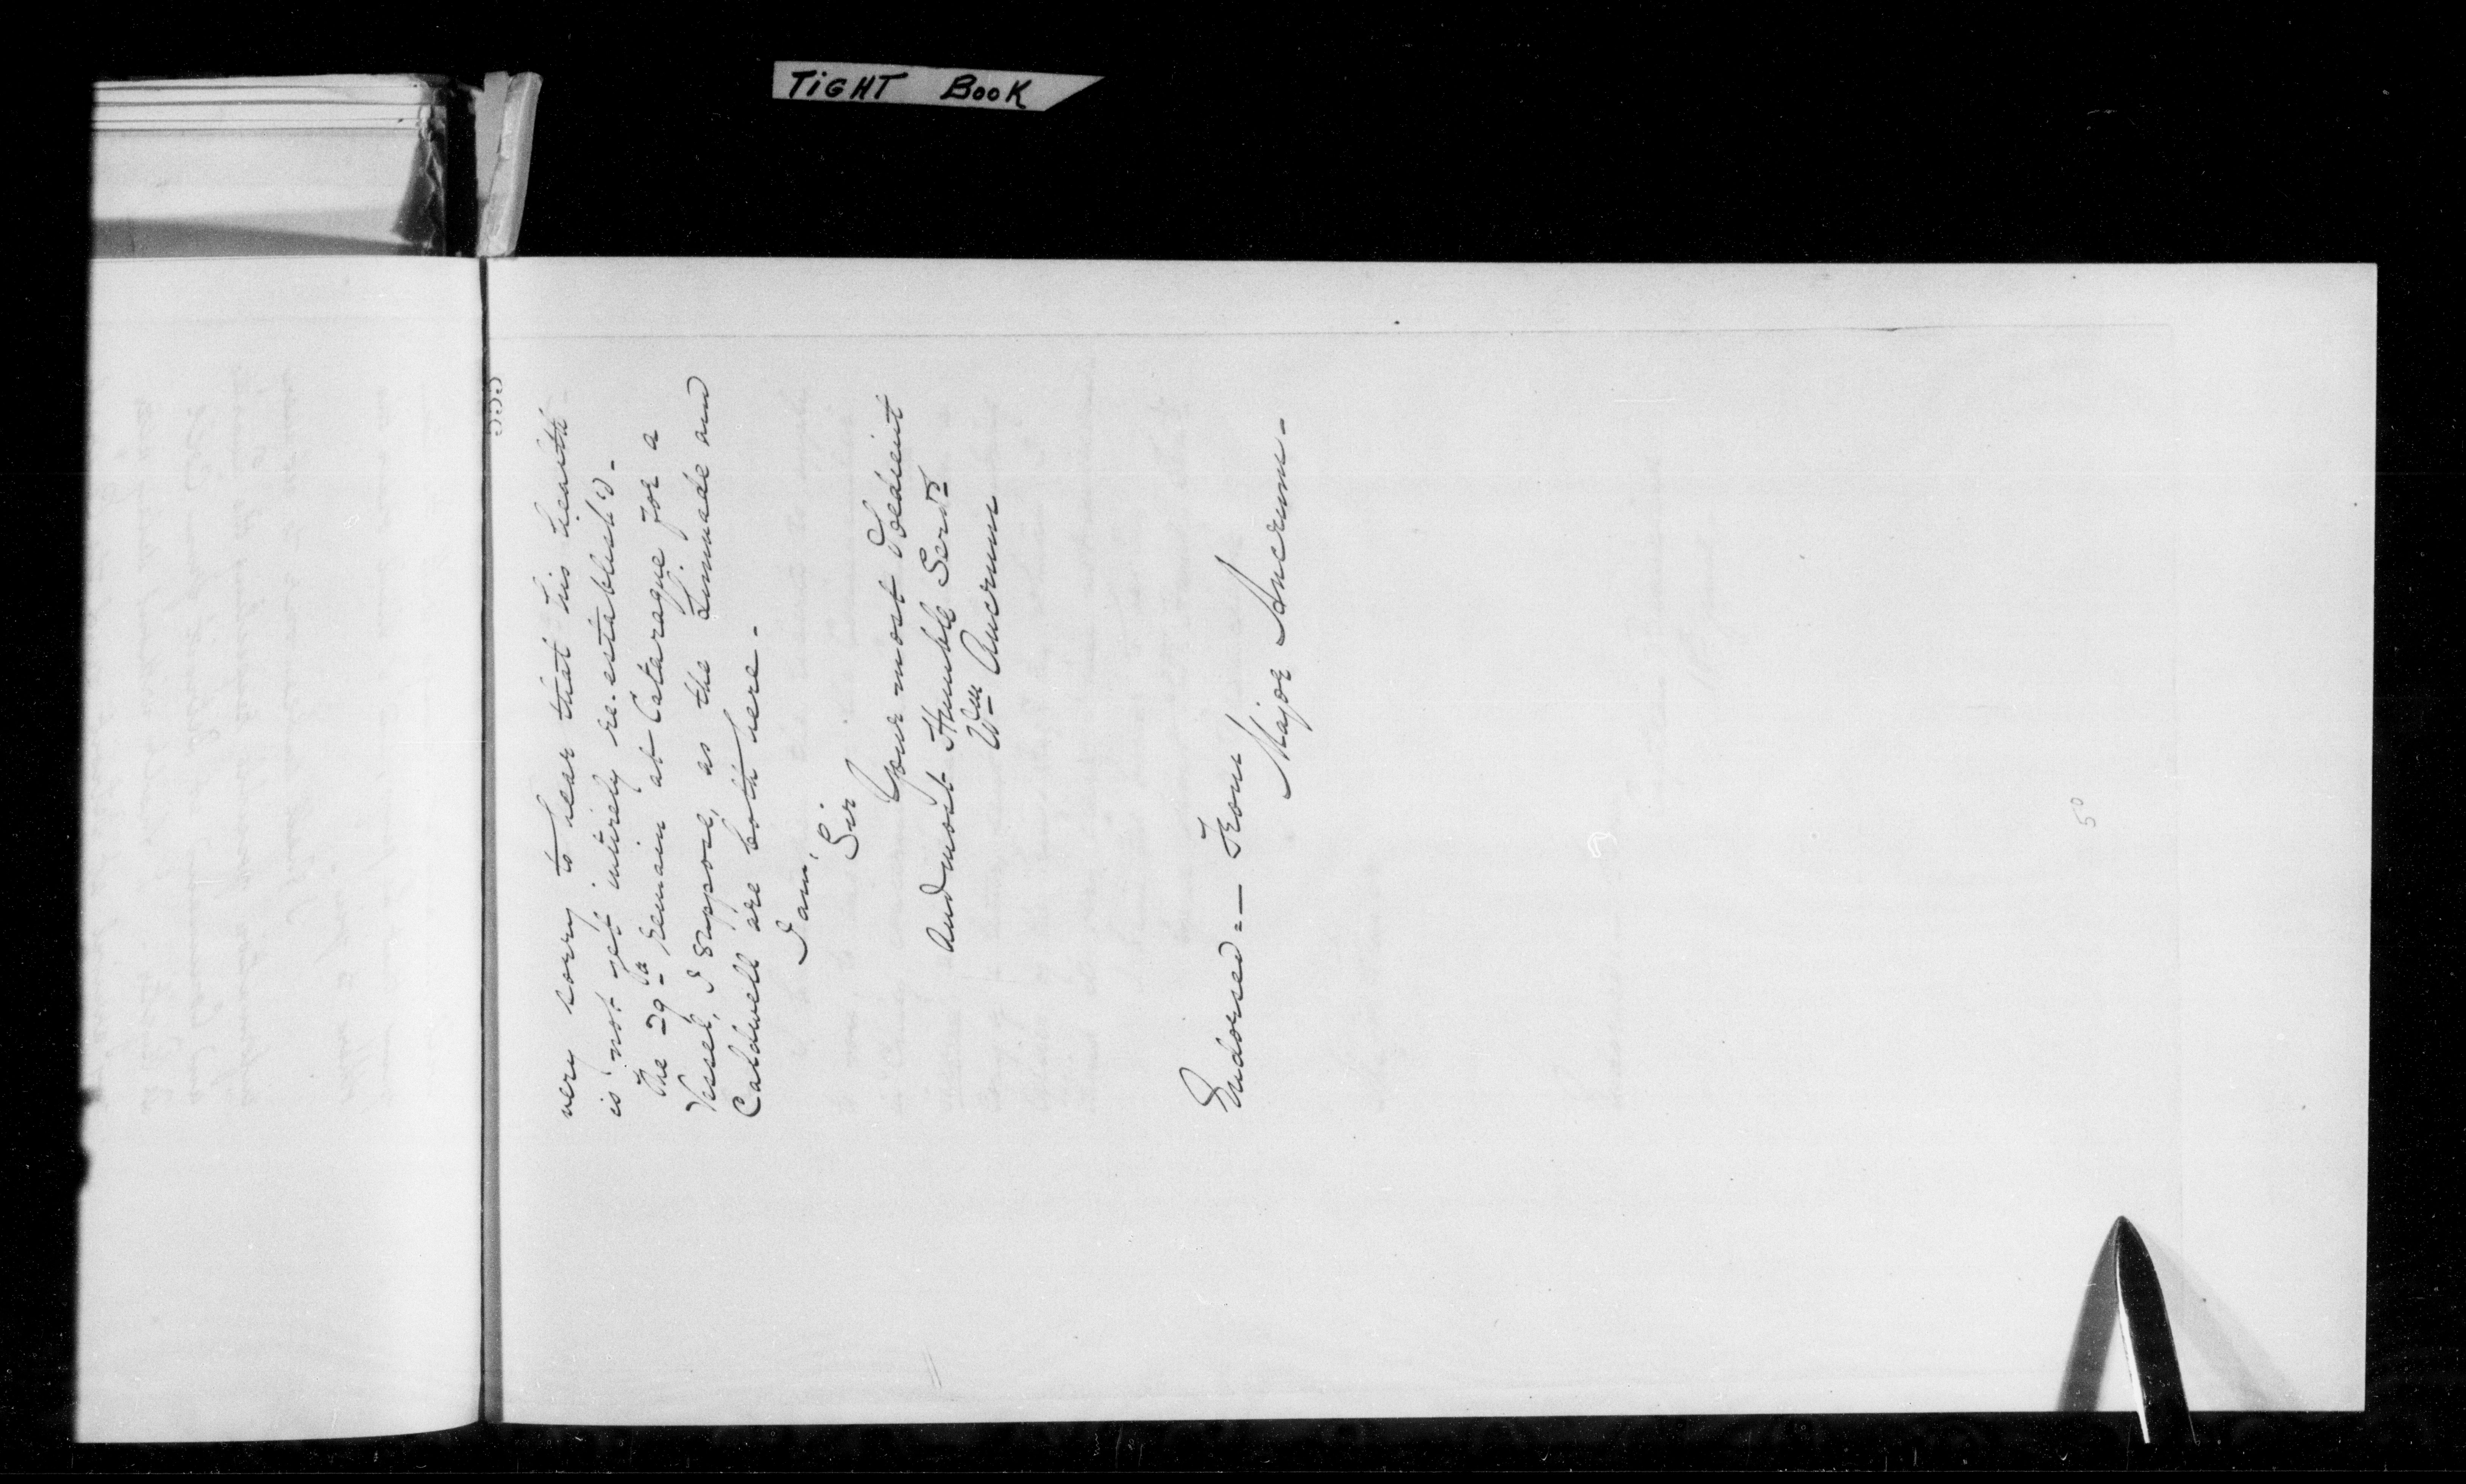 TIGHT BOOK
very sorry to hear that his health
is not yet intirely re-established-
The 29th remain at Cataraque for a
Vessel, I suppose, as the Limnade and
Caldwell are both here-
I am,
Sir
Your most Obedient
And most Humble Servt
Wm Ancrum
Endorsed:- From
Major Ancrum-
50